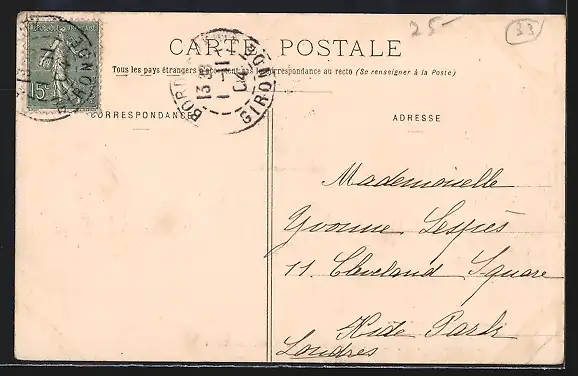 25-
33
RÉPUBLIQUE FRANÇAISE
15c
BORDEAUX
13
1 -11
04
GIRONDE
GIRONDE
CARTE POSTALE
Tous les pays étrangers n'acceptent pas la correspondance au recto (Se renseigner à la Poste)
CORRESPONDANCE
ADRESSE
Mademoiselle
Yvonne
11. Cleveland Square
Hide Park
Londres